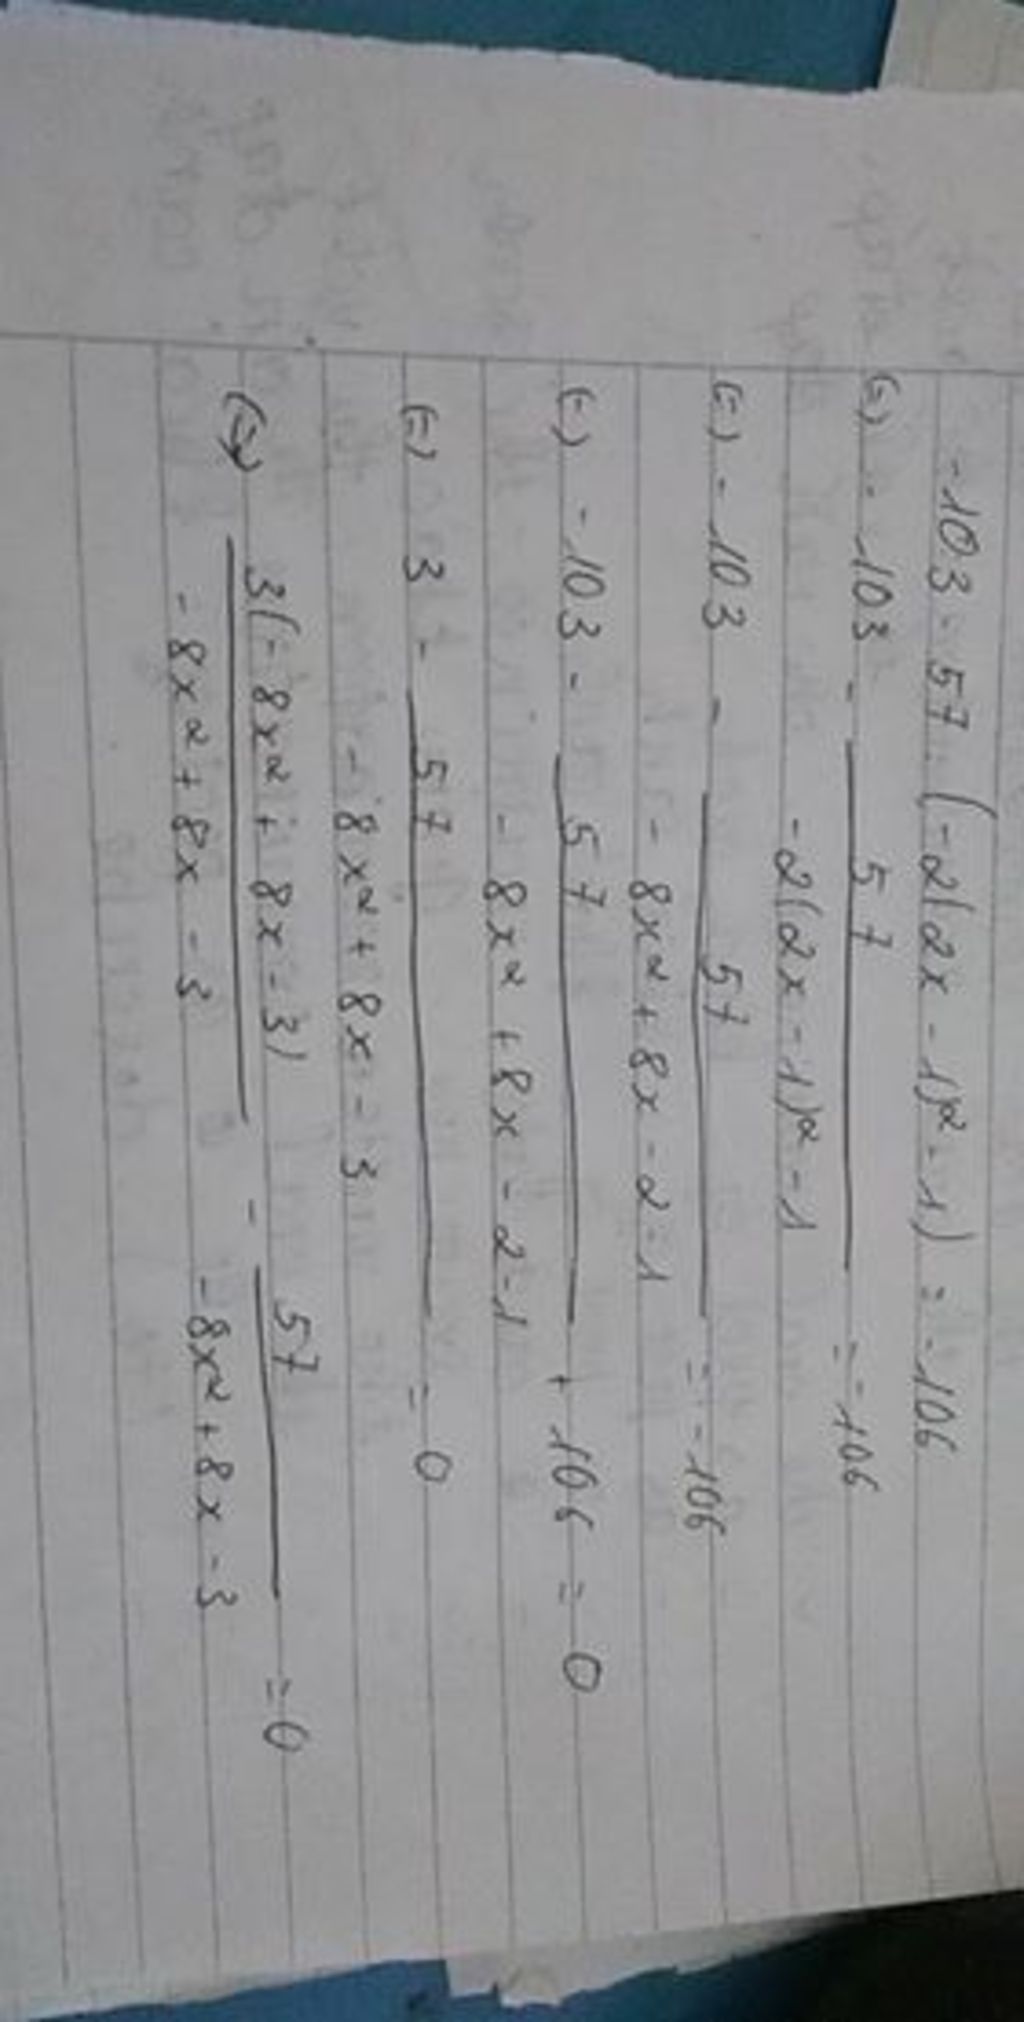 -103 - 57 : (-2(2x - 1)² - 1) = -106
(=) - 103 - 57 / -2(2x - 1)² - 1 = -106
(=) - 103 - 57 / - 8x² + 8x - 2 - 1 = -106
(=) - 103 - 57 / - 8x² + 8x - 2 - 1 + 106 = 0
(=) 3 - 57 / - 8x² + 8x - 3 = 0
(=) 3(- 8x² + 8x - 3) / - 8x² + 8x - 3 - 57 / - 8x² + 8x - 3 = 0